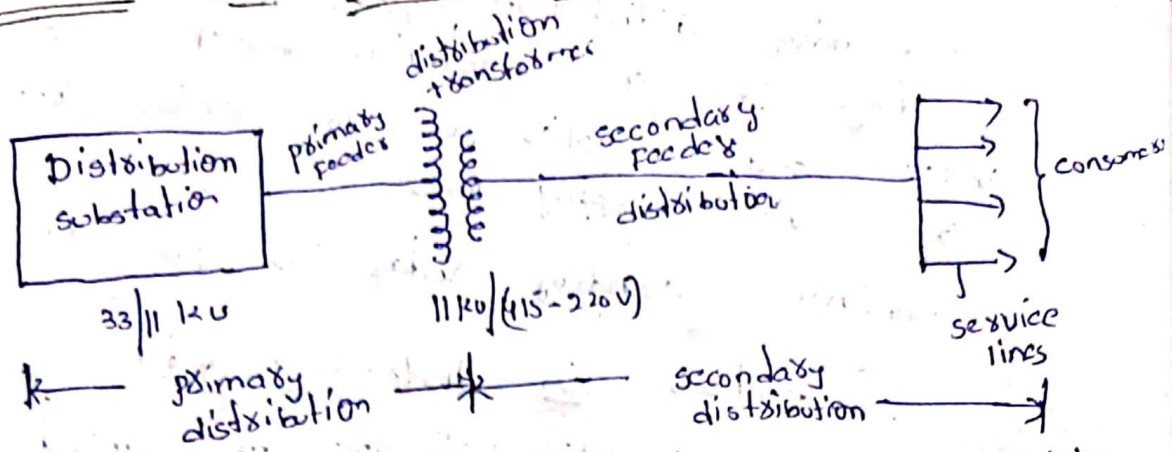 distribution
transformer
Distribution
substation
primary
feeder
secondary
Feeder
distribution
consumers
33/11 kV
11kV/(415-220V)
service
lines
primary
distribution
secondary
distribution